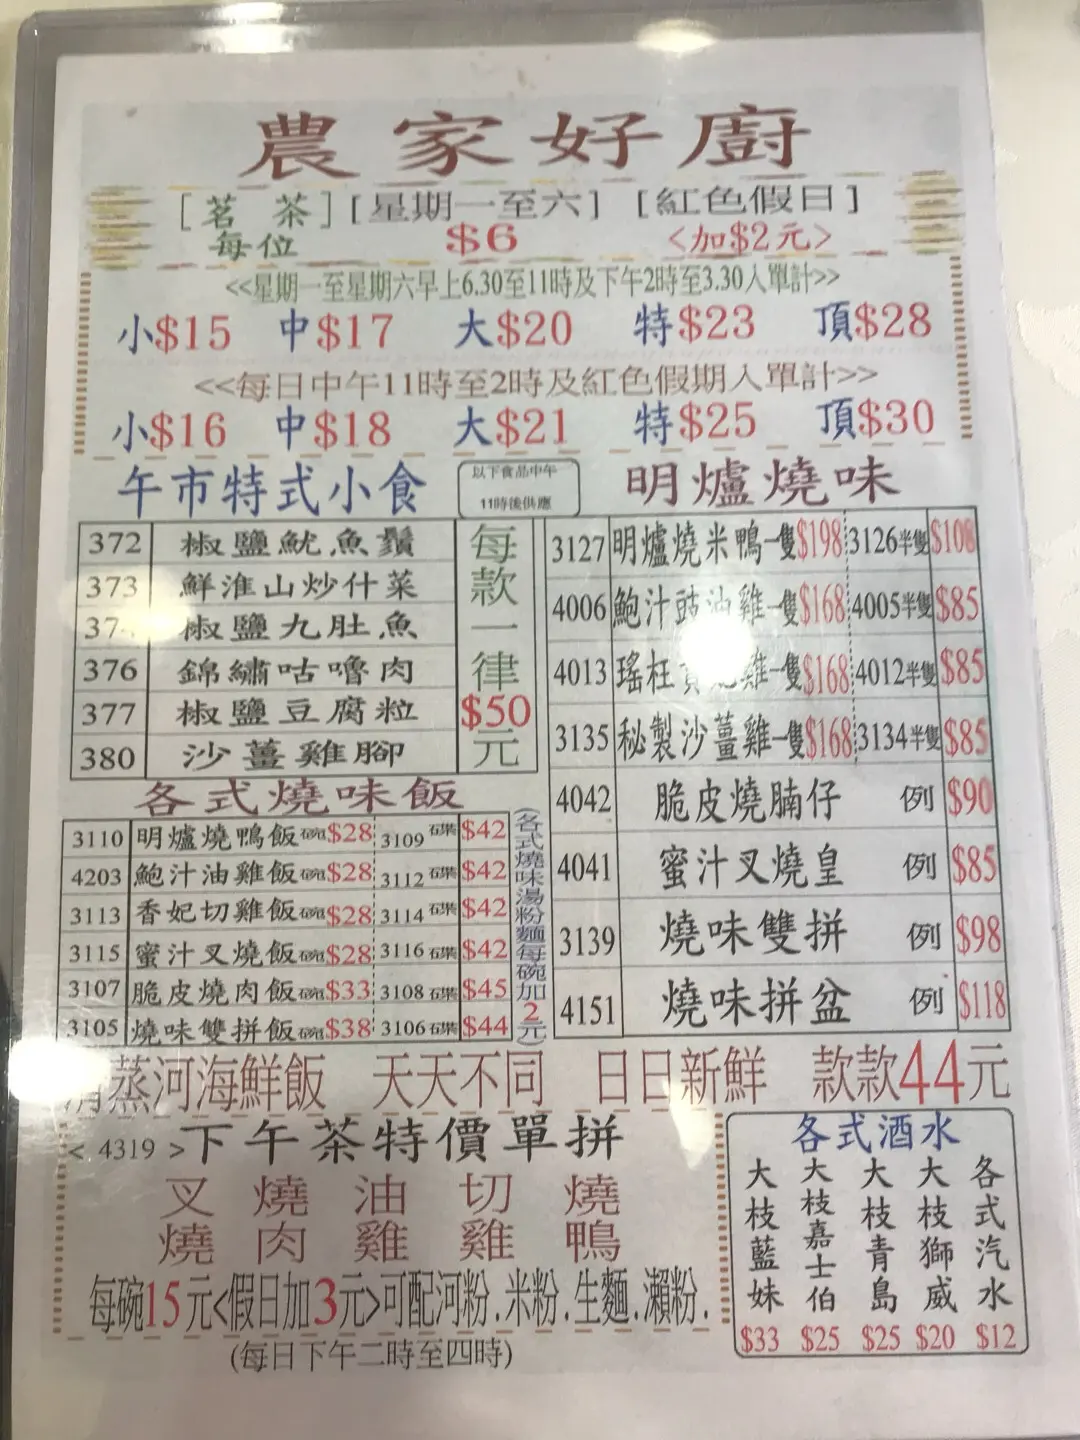 農家好廚
[茗茶] [星期一至六] [紅色假日]
每位 $6 <加$2元>
<<星期一至星期六早上6.30至11時及下午2時至3.30人單計>>
小$15 中$17 大$20 特$23 頂$28
<<每日中午11時至2時及紅色假期入單計>>
小$16 中$18 大$21 特$25 頂$30
午市特式小食
以下食品中午
11時後供應
372 椒鹽魷魚鬚
373 鮮淮山炒什菜
37 椒鹽九肚魚
376 錦繡咕嚕肉
377 椒鹽豆腐粒
380 沙薑雞腳
每款一律$50元
明爐燒味
3127 明爐燒米鴨一隻$198 3126半隻$108
4006 鮑汁豉油雞一隻$168 4005半隻$85
4013 瑤柱 雞一隻$168 4012半隻$85
3135 秘製沙薑雞一隻$168 3134半隻$85
4042 脆皮燒腩仔 例 $90
4041 蜜汁叉燒皇 例 $85
3139 燒味雙拼 例 $98
4151 燒味拼盆 例 $118
各式燒味飯
3110 明爐燒鴨飯碗$28 3109 碟 $42
4203 鮑汁油雞飯碗$28 3112 碟 $42
3113 香妃切雞飯碗$28 3114 碟 $42
3115 蜜汁叉燒飯碗$28 3116 碟 $42
3107 脆皮燒肉飯碗$33 3108 碟 $45
3105 燒味雙拼飯碗$38 3106 碟 $44
(各式燒味湯粉麵每碗加2元)
清蒸河海鮮飯 天天不同 日日新鮮 款款44元
< 4319 >下午茶特價單拼
叉燒 燒肉 油雞 切雞 燒鴨
每碗15元<假日加3元>可配河粉.米粉.生麵.瀨粉.
(每日下午二時至四時)
各式酒水
大枝藍妹 $33
大枝嘉士伯 $25
大枝青島 $25
大枝獅威 $20
各式汽水 $12